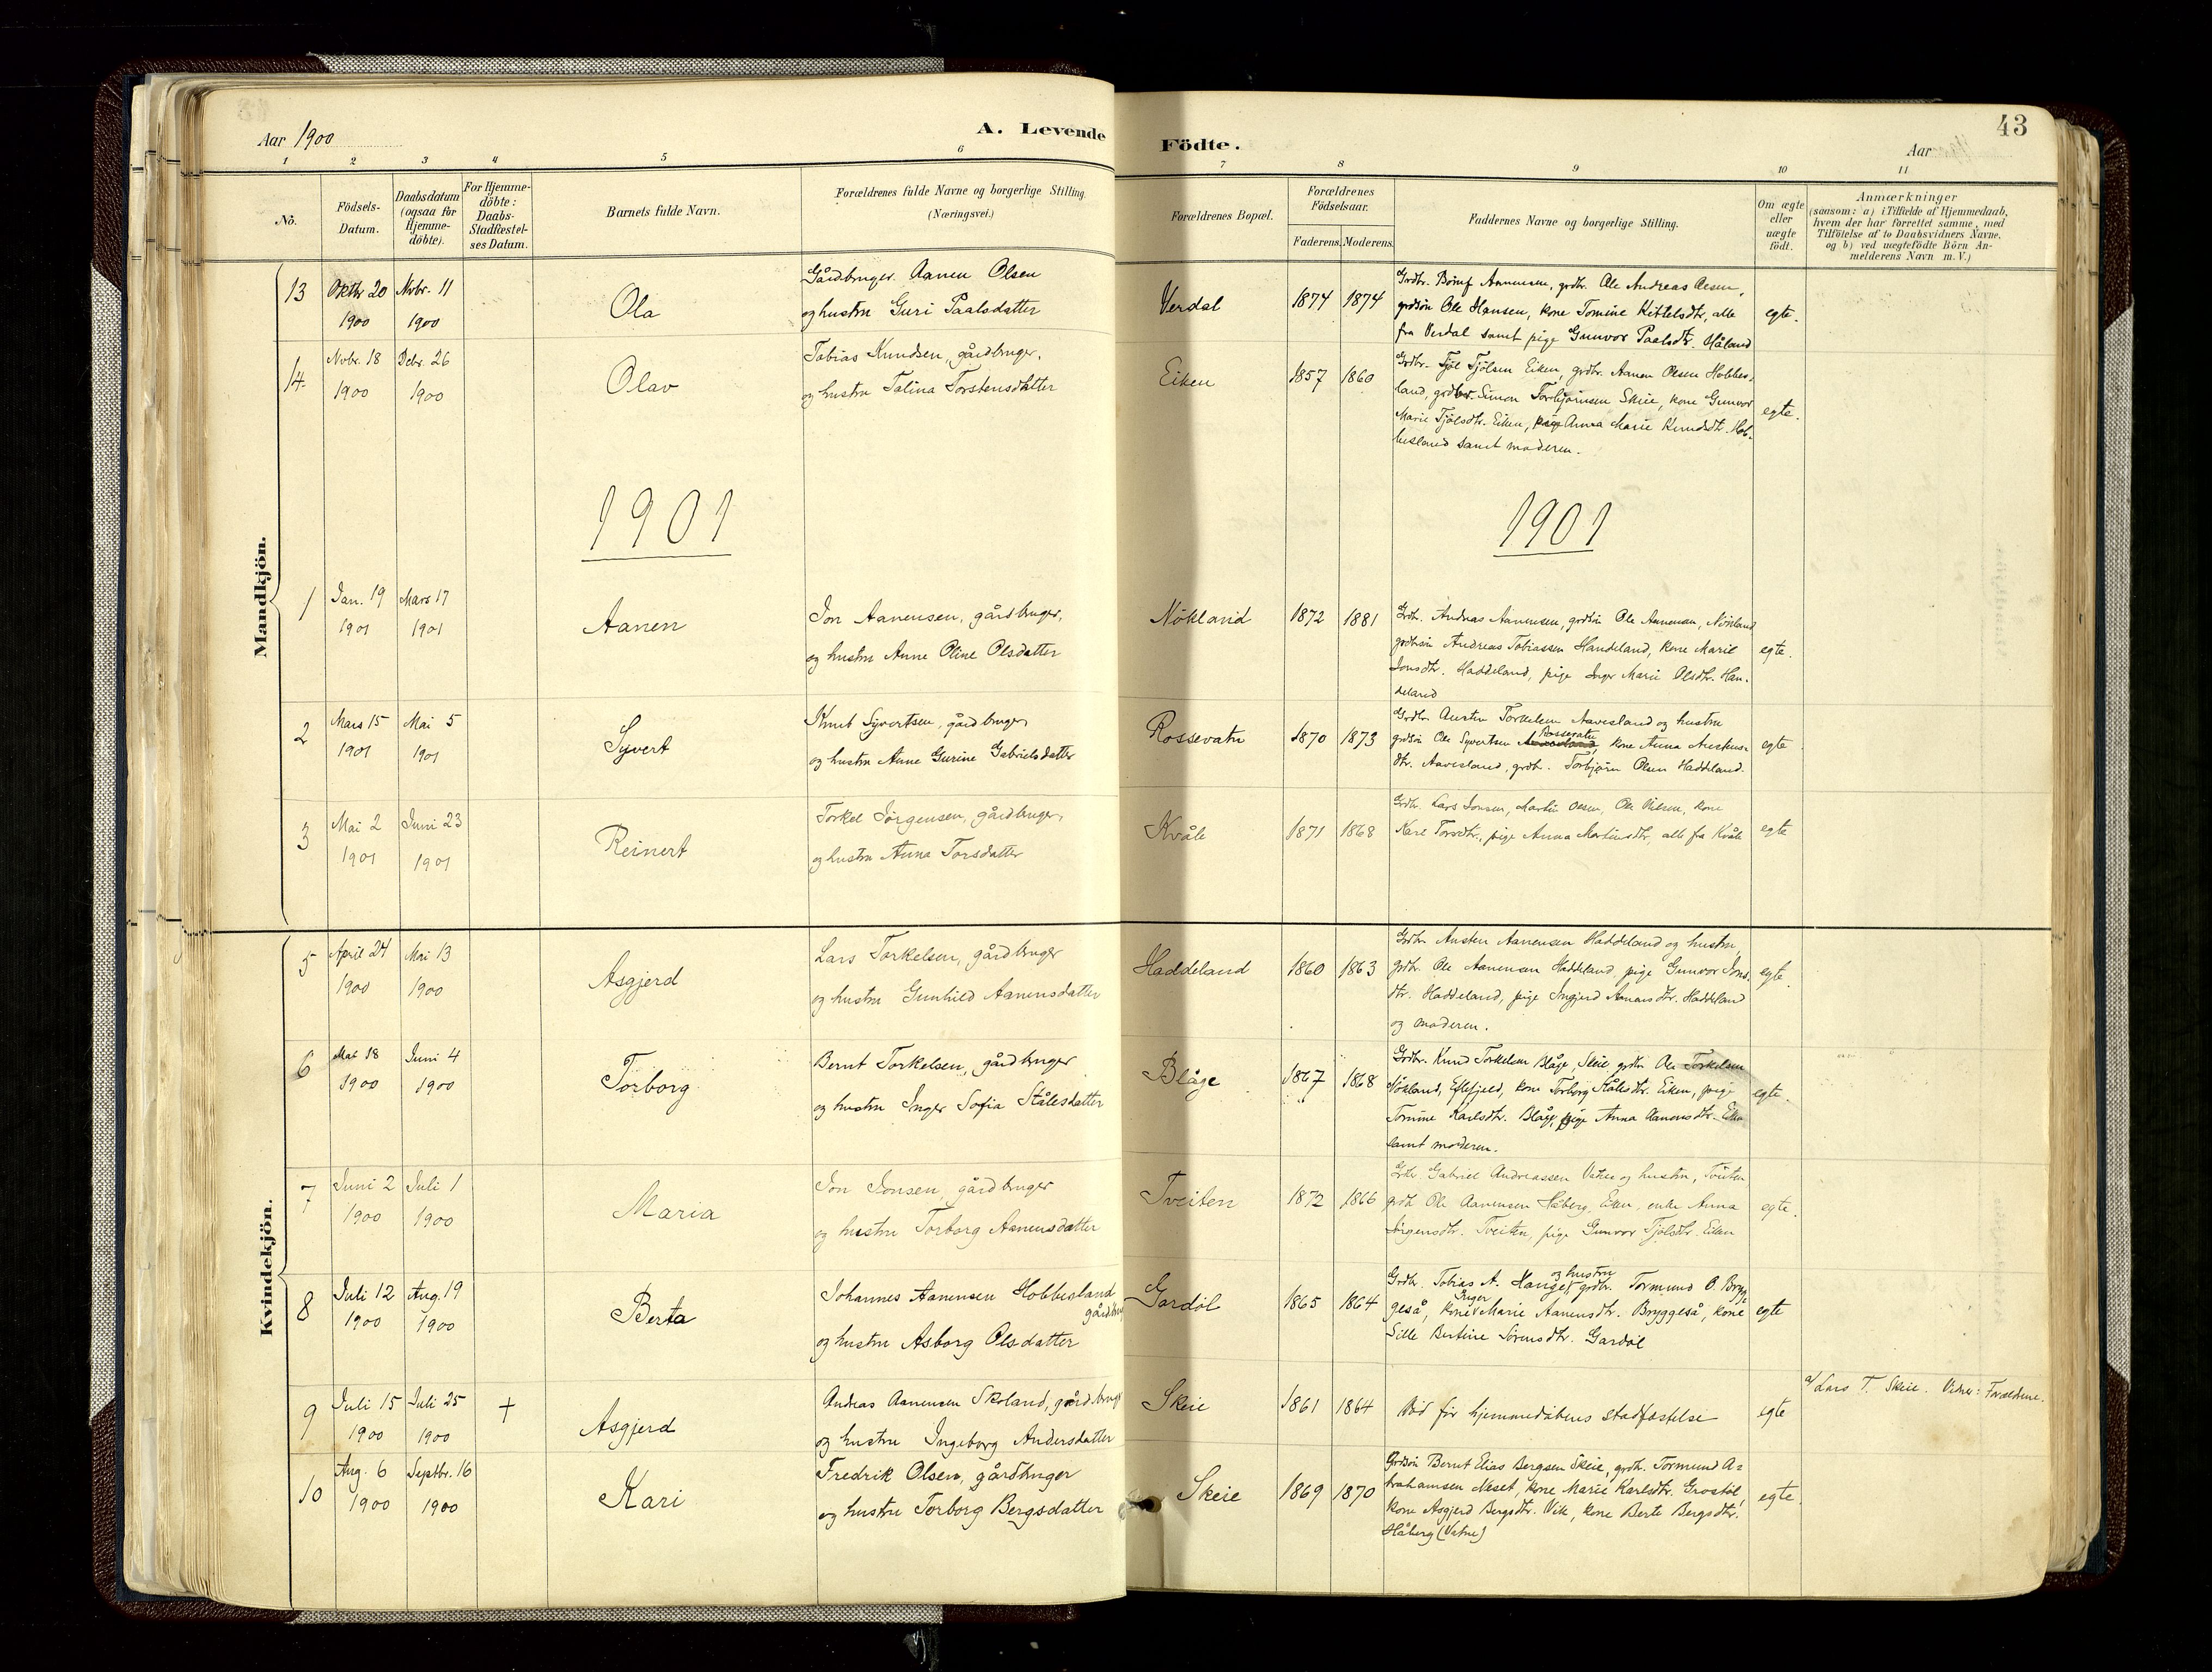 Aar 1900
A. Levende
Födte.
Aar
43
1 2 3 4 5 6 7 8 9 10 11
No.
Födsels-
Datum.
Daabsdatum
(ogsaa for
Hjemme-
döbte).
For Hjemme-
döbte:
Daabs-
Stadfæstel-
ses Datum.
Barnets fulde Navn.
Forældrenes fulde Navne og borgerlige Stilling.
(Næringsvei.)
Forældrenes Bopæl.
Forældrenes
Födselsaar.
Faderens. Moderens.
Faddernes Navne og borgerlige Stilling.
Om ægte
eller
uægte
födt.
Anmærkninger
(saasom: a) i Tilfælde af Hjemmedaab,
hvem der har forrettet samme, med
Tilföielse af to Daabsvidners Navne,
og b) ved uægtefödte Börn An-
melderens Navn m.V.)
Mandkjön.
13
Oktbr 20
1900
Novbr. 11
1900
Ola
Gårdbruger. Aanen Olsen
og hustru Guri Paalsdatter
Verdal
1874 1874
Grdbr. Annensen, grdbr. Ole Andreas Olsen,
grdsön Ole Hansen, kone Tomine Kittelsdtr, alle
fra Verdal samt pige Gunvor Paalsdtr. Håland
egte.
14
Novbr. 18
1900
Debr. 26
1900
Olav
Tobias Knudsen, gårdbruger,
og hustru Talina Torstensdatter
Eiken
1857 1860
Grdbr. Tjöl Tjölsen Eiken, grdbr. Aanen Olsen Hobbes-
land, grdbr. Simon Torbjörnsen Skeie, kone Gunvor
Marie Tjölsdtr. Eiken, pige Anna Marie Knudsdtr. Hob-
besland samt moderen.
egte.
1901
1901
1
Jan. 19
1901
Mars 17
1901
Aanen
Jon Aanensen, gårdbruger,
og hustru Anne Oline Olsdatter
Nökland
1872 1881
Grdbr. Andreas Aanensen, grdsön Ole Aanensen, Nökland
grdbrsön Andreas Tobiassen Handeland, kone Marie
Jonsdtr. Haddeland, pige Inger Marie Olsdtr. Han-
deland
egte.
2
Mars 15
1901
Mai 5
1901
Syvert
Knut Syvertsen, gårdbruger
og hustru Anne Gurine Gabrielsdatter
Rossevatn
1870 1873
Grdbr. Austen Torkelsen Aavesland og hustru
Rossevatn
grdsön Ole Syvertsen, kone Anna Austens-
dtr. Aavesland, grdb. Torbjörn Olsen Haddeland.
egte
3
Mai 2
1901
Juni 23
1901
Reinert
Torkel Jörgensen, gårdbruger,
og hustru Anna Torsdatter
Kvåle
1871 1868
Grdbr. Lars Jonsen, Martin Olsen, Ole Nilsen, kone
Karl Torsdtr., pige Anna Martinsdtr, alle fra Kvåle
egte
Kvindekjön.
5
April 24
1900
Mai 13
1900
Asgjerd
Lars Torkelsen, gårdbruger
og hustru Gunhild Aanensdatter
Haddeland
1860 1863
Grdbr. Austen Aanensen Haddeland og hustru,
grdbr. Ole Aanensen Haddeland, pige Gunvor Jons-
dtr. Haddeland, pige Ingjerd Aanensdtr. Haddeland
og moderen.
egte.
6
Mai 18
1900
Juni 4
1900
Torborg
Bernt Torkelsen, gårdbruger
og hustru Inger Sofia Stålesdatter
Blåge
1867 1868
Grdbr. Knud Torkelsen Blåge, Skeie grdbr Ole Torkelsen
Nökland, Eftefjeld, kone Torborg Stålesdtr. Eiken, pige
Tomine Karlsdtr. Blåge, pige Anna Aanensdtr. Eiken
samt moderen.
egte.
7
Juni 2
1900
Juli 1
1900
Maria
Jon Jonsen, gårdbruger
og hustru Torborg Aanensdatter
Tveiten
1872 1866
Grdbr. Gabriel Andreassen Vatne og hustru, Tveiten
grdb. Ole Aanensen Håberg, Eiken, enke Anna
Jörgensdtr. Tveiten, pige Gunvor Tjölsdtr. Eiken
egte.
8
Juli 12
1900
Aug. 19
1900
Berta
Johannes Aanensen Hobbesland
gårdbrug
og hustru Asborg Olsdatter
Gardöl
1865 1864
og hustru
Grdbr. Tobias A. Hauge, grdbr. Tormund O. Brygg-
Inger
geså, kone Marie Aanensdtr. Bryggeså, kone
Sille Bertine Sörensdtr. Gardöl
egte
9
Juli 15
1900
Juli 25
1900
†
Asgjerd
Andreas Aanensen Skoland, gårdbrug
og hustru Ingeborg Andersdatter
Skeie
1861 1864
Död för hjemmedåbens stadfæstelse
egte
a) Lars T. Skeie. Vidner: Forældrene.
10
Aug. 6
1900
Septbr. 16
1900
Kari
Fredrik Olsen, gårdbruger
og hustru Torborg Bergsdatter
Skeie
1869 1870
Grdsön Bernt Elias Bergsen Skeie, grdb. Tormund A-
brahamsen Neset, kone Marie Karlsdtr. Grostöl,
kone Asgjerd Bergsdtr. Vik, kone Berte Bergsdtr.
Håberg (Vatne)
egte.